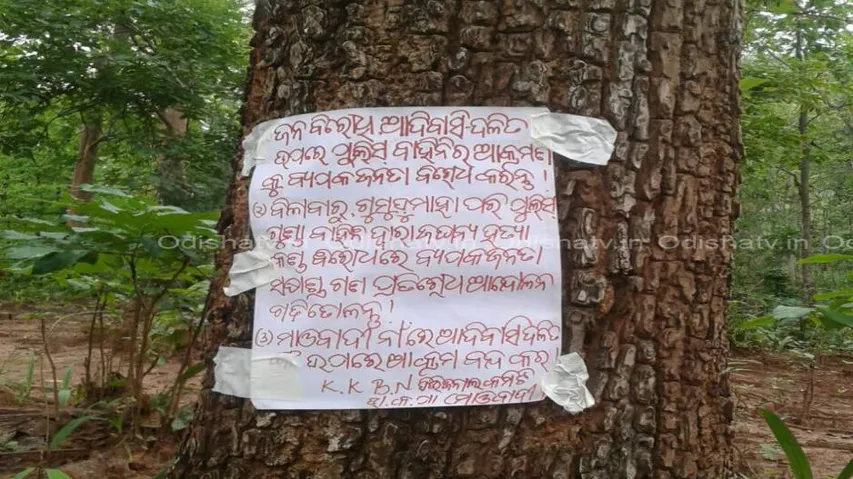 ଜନ ବିରୋଧ ଆଦିବାସି ଦଳିତ
ଉପରେ ପୁଲିସ ବାହିନିର ଆକ୍ରମଣ
କୁ ବ୍ୟାପକ ଜନତା ବିରୋଧ କରନ୍ତୁ ।
୨ ବିଳାବାରୁ, ଗୁମୁଘୁମାହା ପରି ପୁଲିସ
ଗୁଣ୍ଡା ଦ୍ୱାରା ଜଘନ୍ୟ ହତ୍ୟା
କାଣ୍ଡ ବିରୋଧରେ ବ୍ୟାପକ ଜନତା
ଗଣ ପ୍ରତିରୋଧ ଆନ୍ଦୋଳନ
ଗଢିତୋଳନ୍ତୁ !
୩ ମାଓବାଦୀ ନାଁ ରେ ଆଦିବାସି ଦଳିତ
ଉପରେ ବନ୍ଦ କର
K.K.B.N କମିଟି
ଭା.କ.ପା (ମାଓବାଦୀ)
Odishatv.in Odishatv.in Odishatv.in Odishatv.in